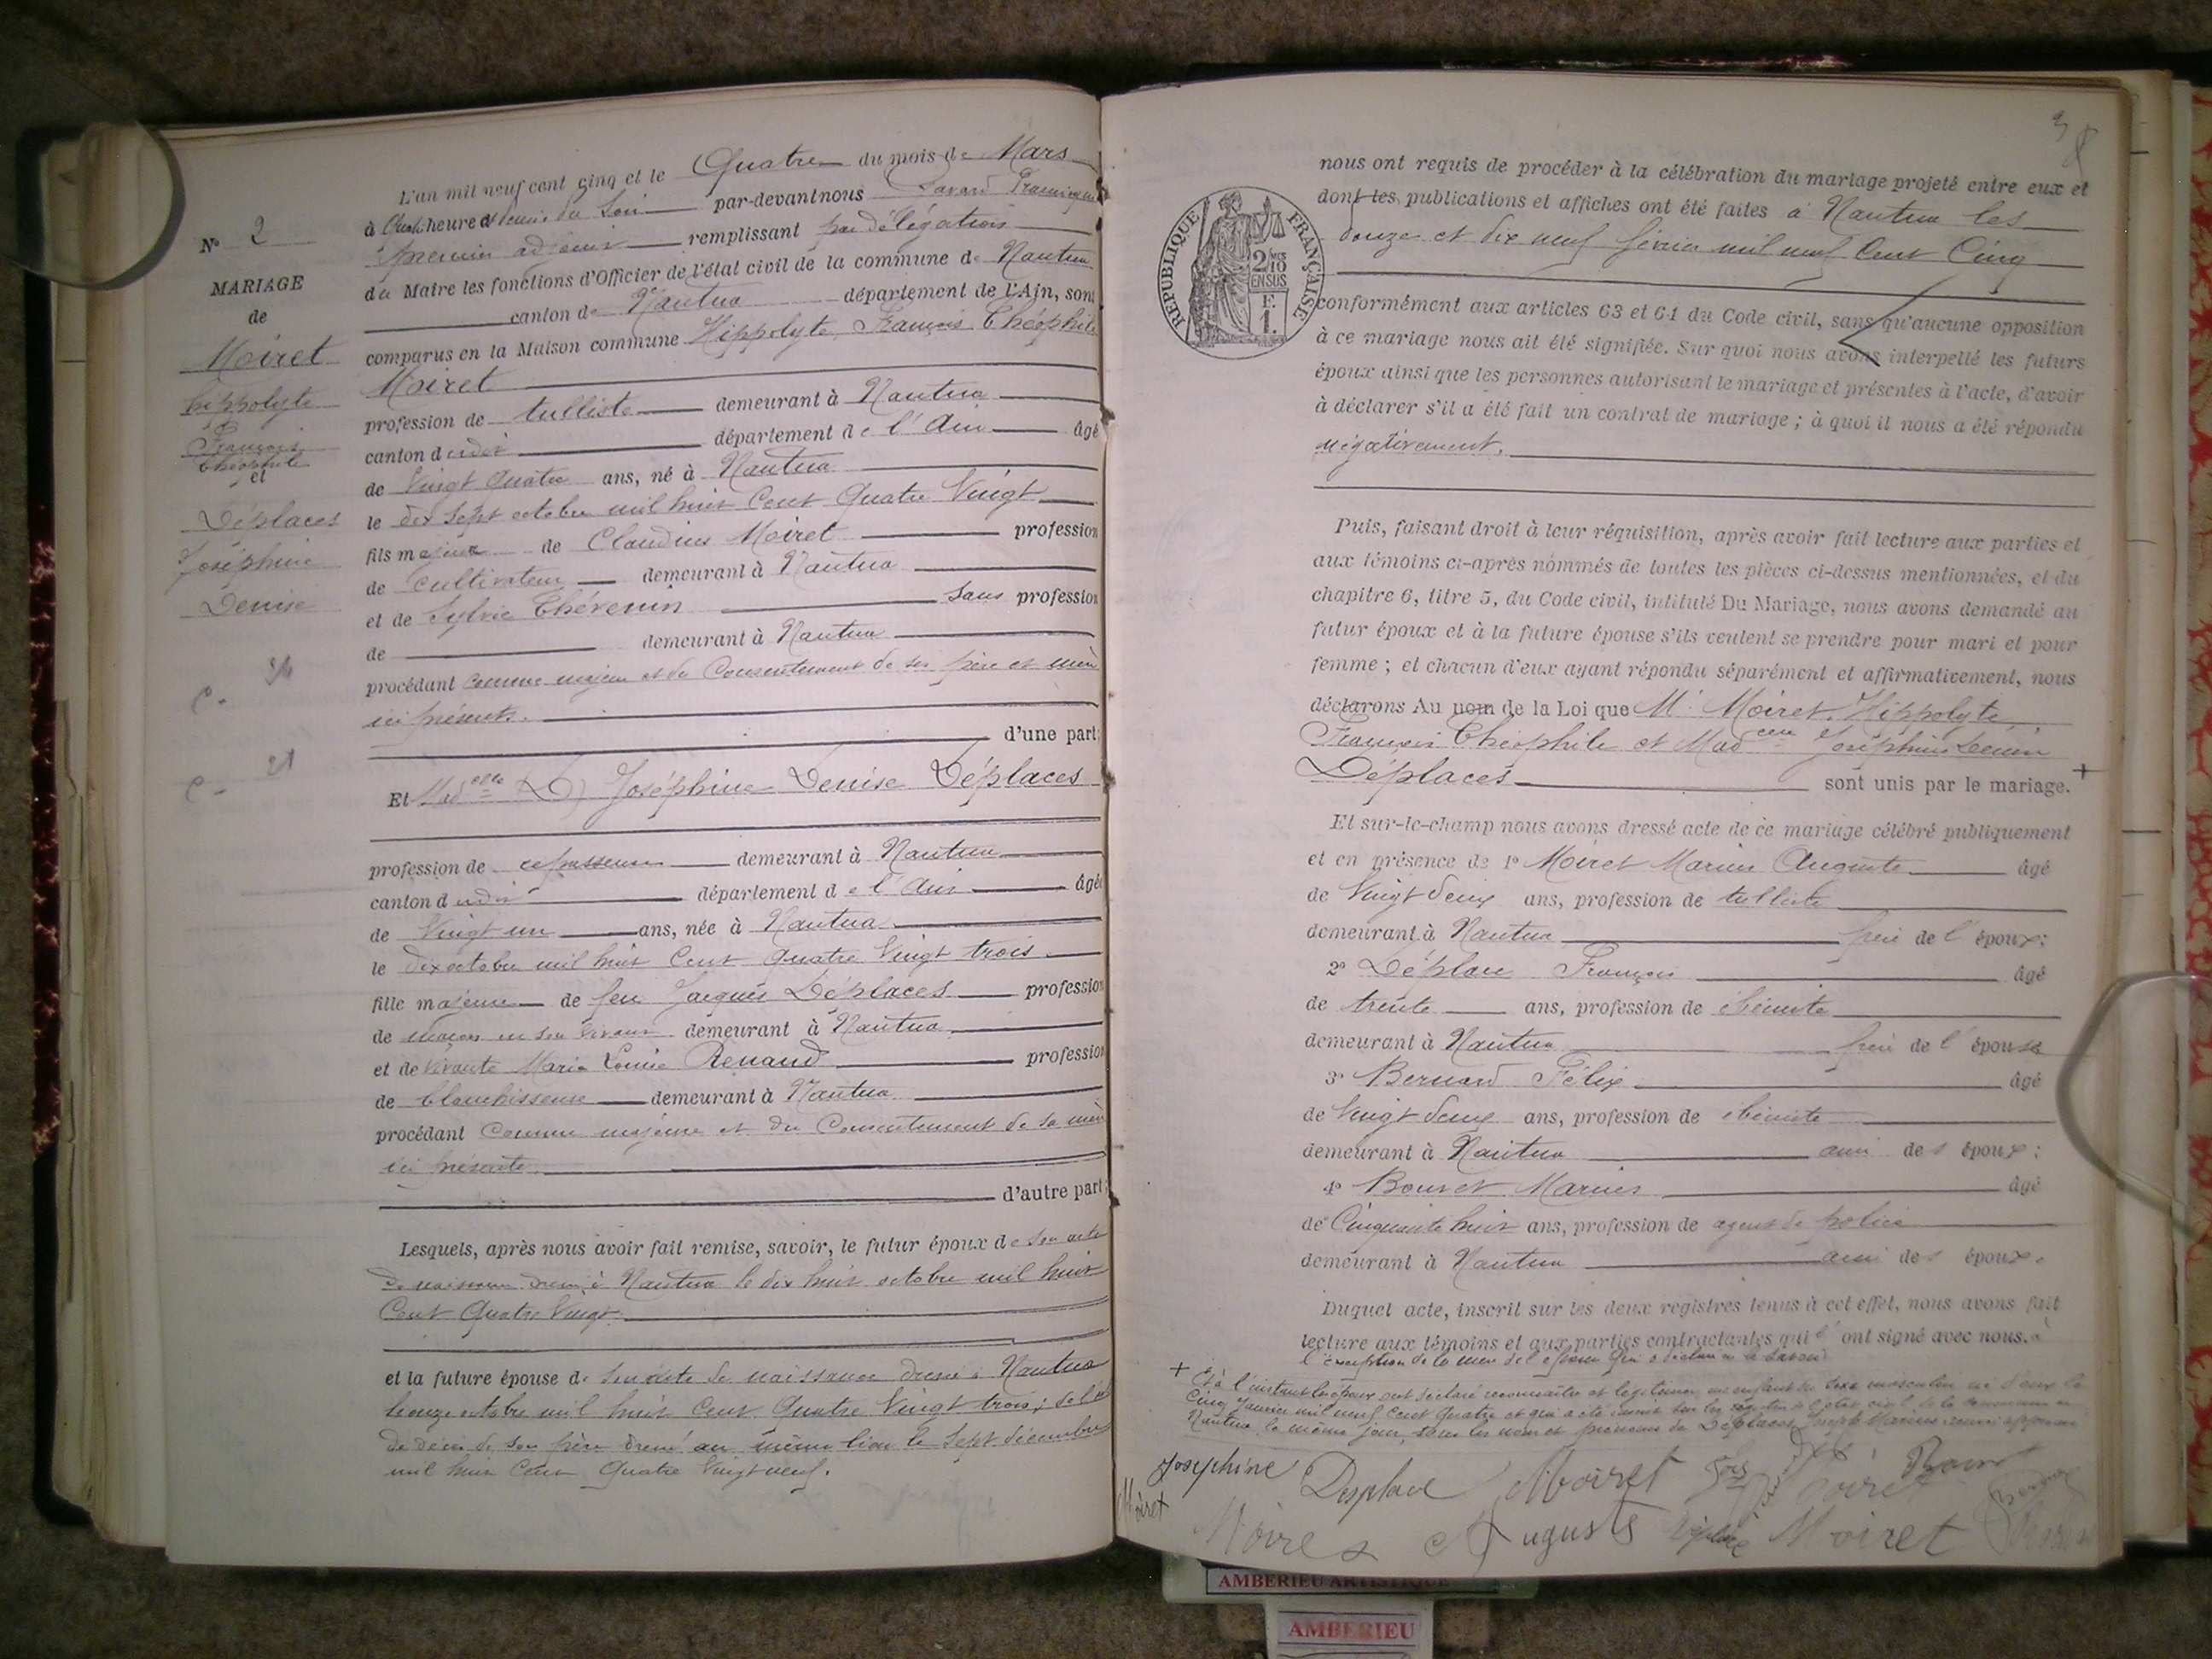 N° 2
MARIAGE
de
Moiret
hippolyte
François
Théophile
et
Déplaces
Joséphine
Denise
L'an mil neuf cent cinq et le Quatre du mois de Mars
à heure et demie du Soir par-devant nous
premier adjoint remplissant par délégation
du Maire les fonctions d'Officier de l'état civil de la commune de Nantua
canton de Nantua département de l'Ain, sont
comparus en la Maison commune Hippolyte, François Théophile
Moiret
profession de tulliste demeurant à Nantua
canton dudit département de l'Ain âgé
de Vingt Quatre ans, né à Nantua
le dix sept octobre mil huit Cent Quatre Vingt
fils majeur de Claudius Moiret profession
de cultivateur demeurant à Nantua
et de Sylvie Thévenin Sans profession
de demeurant à Nantua
procédant comme majeur et du Consentement de ses père et mère
ici présents.
d'une part;
Et Madelle Joséphine Denise Déplaces
profession de repasseuse demeurant à Nantua
canton dudit département de l'Ain âgée
de Vingt un ans, née à Nantua
le dix octobre mil huit Cent Quatre Vingt trois
fille majeure de feu Jacques Déplaces profession
de maçon en son vivant demeurant à Nantua
et de vivante Marie Louise Renaud profession
de blanchisseuse demeurant à Nantua
procédant comme majeure et du Consentement de sa mère
ici présente
d'autre part;
Lesquels, après nous avoir fait remise, savoir, le futur époux de son acte
de naissance dressé à Nantua le dix huit octobre mil huit
Cent Quatre Vingt
et la future épouse de son acte de naissance dressé à Nantua
le onze octobre mil huit Cent Quatre Vingt trois;
de décès de son père dressé au même lieu le sept décembre
mil huit Cent Quatre Vingt neuf.
3
RÉPUBLIQUE FRANÇAISE
2/10 MES
EN SUS
F.
1.
nous ont requis de procéder à la célébration du mariage projeté entre eux et
dont les publications et affiches ont été faites à Nantua les
douze et dix neuf février mil neuf Cent Cinq
conformément aux articles 63 et 64 du Code civil, sans qu'aucune opposition
à ce mariage nous ait été signifiée. Sur quoi nous avons interpellé les futurs
époux ainsi que les personnes autorisant le mariage et présentes à l'acte, d'avoir
à déclarer s'il a été fait un contrat de mariage ; à quoi il nous a été répondu
négativement.
Puis, faisant droit à leur réquisition, après avoir fait lecture aux parties et
aux témoins ci-après nommés de toutes les pièces ci-dessus mentionnées, et du
chapitre 6, titre 5, du Code civil, intitulé Du Mariage, nous avons demandé au
futur époux et à la future épouse s'ils veulent se prendre pour mari et pour
femme ; et chacun d'eux ayant répondu séparément et affirmativement, nous
déclarons Au nom de la Loi que M. Moiret, Hippolyte,
François Théophile et Madelle Joséphine Denise
Déplaces sont unis par le mariage. +
Et sur-le-champ nous avons dressé acte de ce mariage célébré publiquement
et en présence de 1° Moiret Marius Auguste âgé
de Vingt deux ans, profession de tulliste
demeurant à Nantua frère de l'époux;
2° Déplace François âgé
de trente ans, profession de ébéniste
demeurant à Nantua frère de l'épouse
3° Bernard Félix âgé
de Vingt deux ans, profession de ébéniste
demeurant à Nantua ami des époux;
4° Bouvet Marius âgé
de Cinquante huit ans, profession de agent de police
demeurant à Nantua ami des époux.
Duquel acte, inscrit sur les deux registres tenus à cet effet, nous avons fait
lecture aux témoins et aux parties contractantes qui l'ont signé avec nous. à
l'exception de la mère de l'épouse qui a déclaré ne le savoir
+ Et à l'instant les époux ont déclaré reconnaître et légitimer un enfant du sexe masculin né d'eux le
Cinq Janvier mil neuf Cent Quatre et qui a été inscrit sur les registres de l'état civil de la commune de
Nantua le même jour, sous les nom et prénoms de Déplaces Joseph Marius
Josephine Desplace Moiret
Moiret
Moiret Auguste Déplace Moiret
AMBERIEU ARTISTIQUE
AMBERIEU